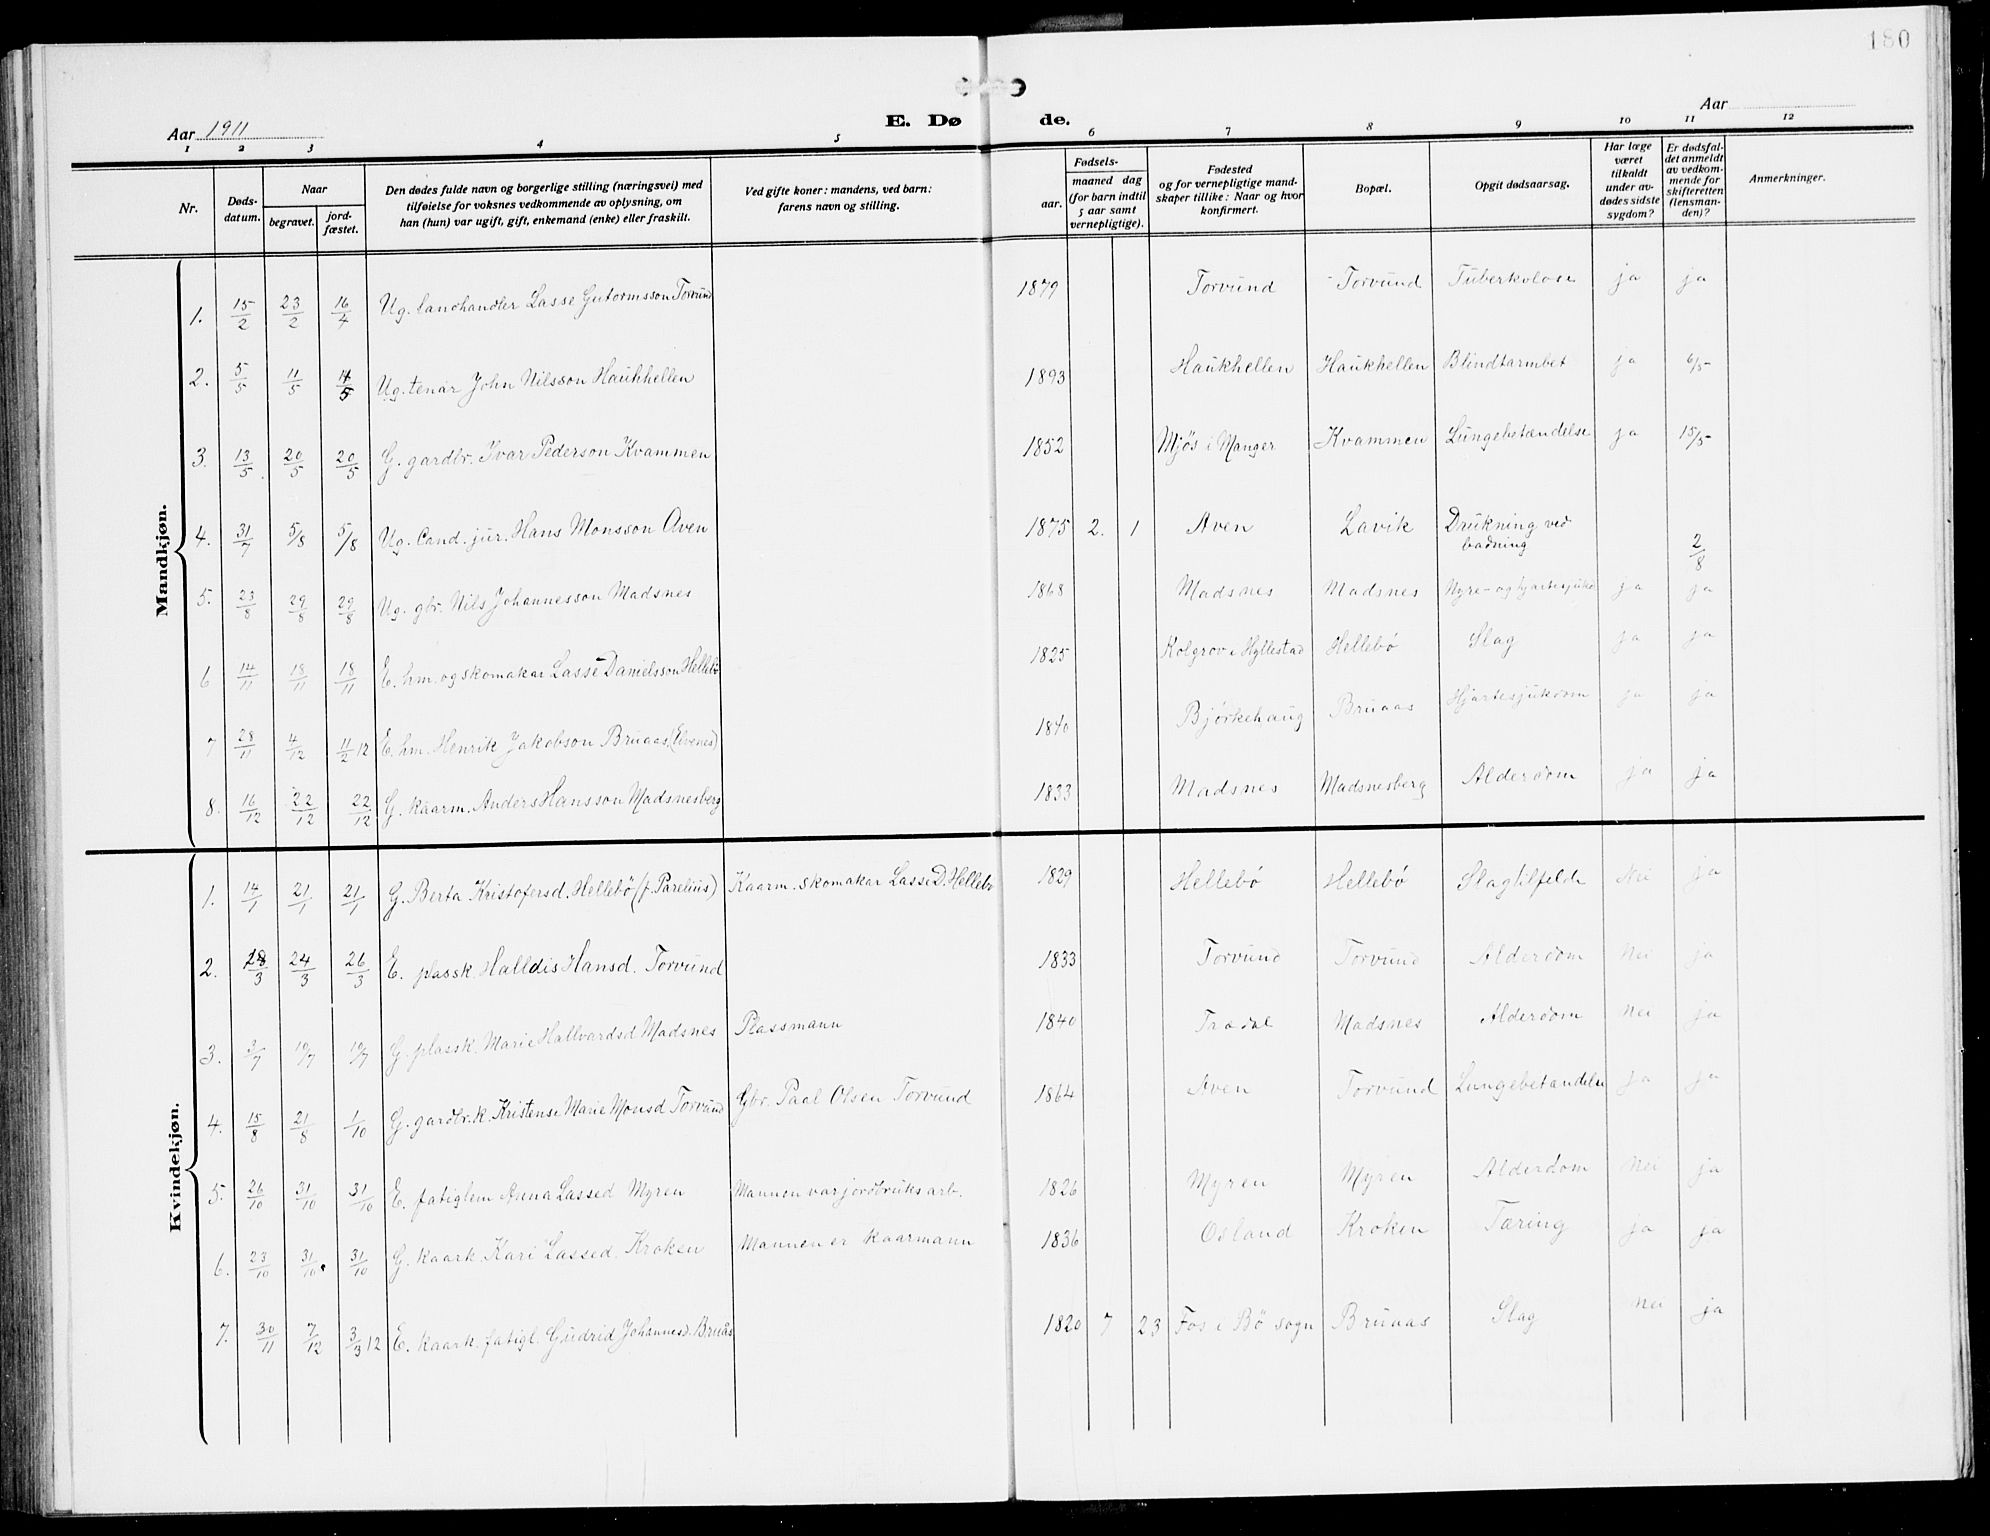 180
Aar 1911
E. Døde.
Aar
1 2 3 4 5 6 7 8 9 10 11 12
Nr.
Dødsdatum.
Naar
begravet.
jordfæstet.
Den dødes fulde navn og borgerlige stilling (næringsvei) med
tilføielse for voksnes vedkommende av oplysning, om
han (hun) var ugift, gift, enkemand (enke) eller fraskilt.
Ved gifte koner: mandens, ved barn:
farens navn og stilling.
Fødsels-
aar.
maaned dag
(for barn indtil
5 aar samt
vernepligtige).
Fødested
og for vernepligtige mand-
skaper tillike: Naar og hvor
konfirmert.
Bopæl.
Opgit dødsaarsag.
Har læge
været
tilkaldt
under av-
dødes sidste
sygdom?
Er dødsfal-
det anmeldt
av vedkom-
mende for
skifteretten
(lensman-
den)?
Anmerkninger.
Mandkjøn.
1. 15/2 23/2 16/4 Ug. landhandler Lasse Gutormsson Torvund 1879 Torvund Torvund Tuberkulose ja ja
2. 5/5 11/5 11/5 Ug. tenar John Nilsson Haukhellen 1893 Haukhellen Haukhellen Blindtarmbet ja 6/5
3. 13/5 20/5 20/5 G. gardbr. Ivar Pederson Kvammen 1852 Mjøs i Manger Kvammen Lungebetændelse ja 15/5
4. 31/7 5/8 5/8 Ug. Cand. jur. Hans Monsson Aven 1875 2. 1 Aven Lavik Drukning ved badning 2/8
5. 23/8 29/8 29/8 Ug. gbr. Nils Johannesson Madsnes 1868 Madsnes Madsnes Nyre- og hjartesjukd ja ja
6 14/11 18/11 18/11 E. hm. og skomakar Lasse Danielsson Hellebø 1825 Kolgrov i Hyllestad Hellebø Slag ja ja
7 28/11 4/12 11/2 12 E. hm. Henrik Jakobson Bruaas (Elvenes) 1840 Bjørkehaug Bruaas Hjartesjukdom ja ja
8. 16/12 22/12 22/12 G. kaarm. Anders Hansson Madsnesberg 1833 Madsnes Madsnesberg Alderdom ja ja
Kvindekjøn.
1. 14/1 21/1 21/1 G. Berta Kristofersd. Hellebö (f. Parelius) Kaarm. skomakar Lasse D. Hellebø 1829 Hellebö Hellebö Slagtilfelde Nei ja
2. 18/3 24/3 26/3 E. plassk. Halldis Hansd. Torvund 1833 Torvund Torvund Alderdom Nei ja
3. 3/7 10/7 10/7 G. plassk. Marie Hallvardsd Madsnes Plassmann 1840 Tredal Madsnes Alderdom Nei ja
4. 15/8 21/8 1/10 G. gardbr.k. Kristense Marie Monsd Torvund Gbr. Paal Olsen Torvund 1864 Aven Torvund Lungebetændelse ja ja
5. 26/10 31/10 31/10 E. fatiglem Anna Lassed Myren Mannen var jordbruksarb. 1826 Myren Myren Alderdom Nei ja
6. 23/10 31/10. 31/10 G. kaark. Kari Lassed. Kroken Mannen er kaarmann 1836 Osland Kroken Tæring ja ja
7. 30/11 7/12 3/3 12 E. kaark. fatigl. Gudrid Johannesd. Bruås 1820 7 23 Fos i Bö sogn Bruaas Slag Nei ja